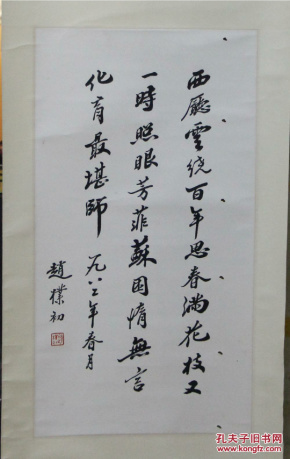 西廳雲繞百年思春滿花枝又
一時照眼芳菲蘇困惰無言
化育最堪師 一九八二年春月
趙樸初
孔夫子旧书网